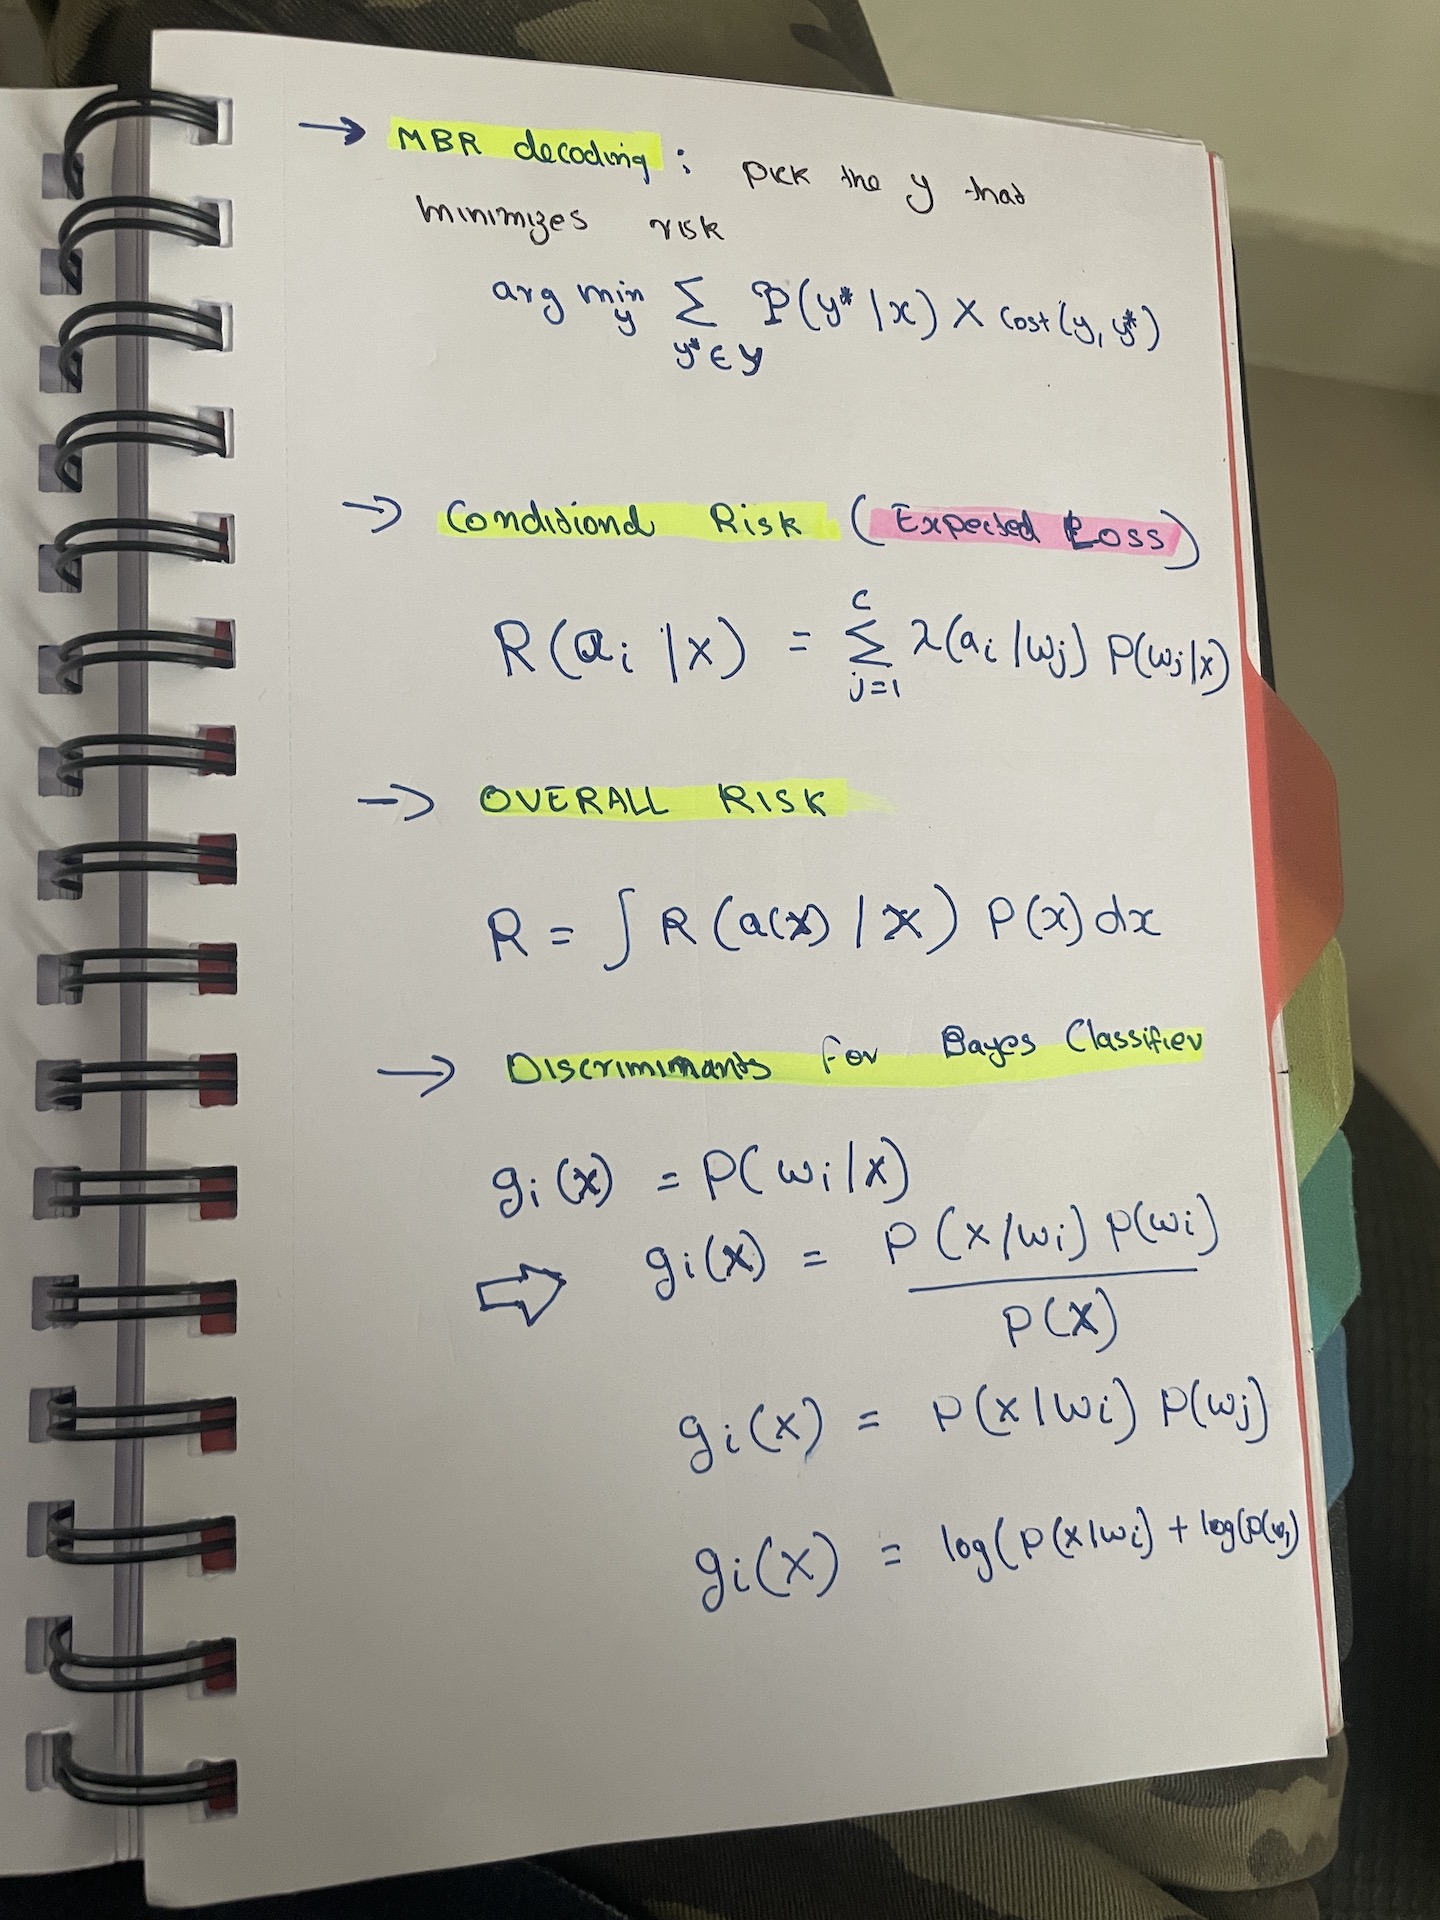 → MBR decoding : pick the y that
minimizes risk
arg min Σ P(y* | x) X cost(y, y*)
y y* ∈ y
→ Conditional Risk (Expected Loss)
R(ai | x) = Σ λ(ai | wj) P(wj | x)
c
j=1
→ OVERALL RISK
R = ∫ R (a(x) / x) P(x) dx
→ Discriminants for Bayes Classifier
gi(x) = P(wi | x)
⇨ gi(x) = P(x/wi) p(wi)
p(x)
gi(x) = p(x | wi) p(wj)
gi(x) = log(p(x|wi) + log(p(wj)